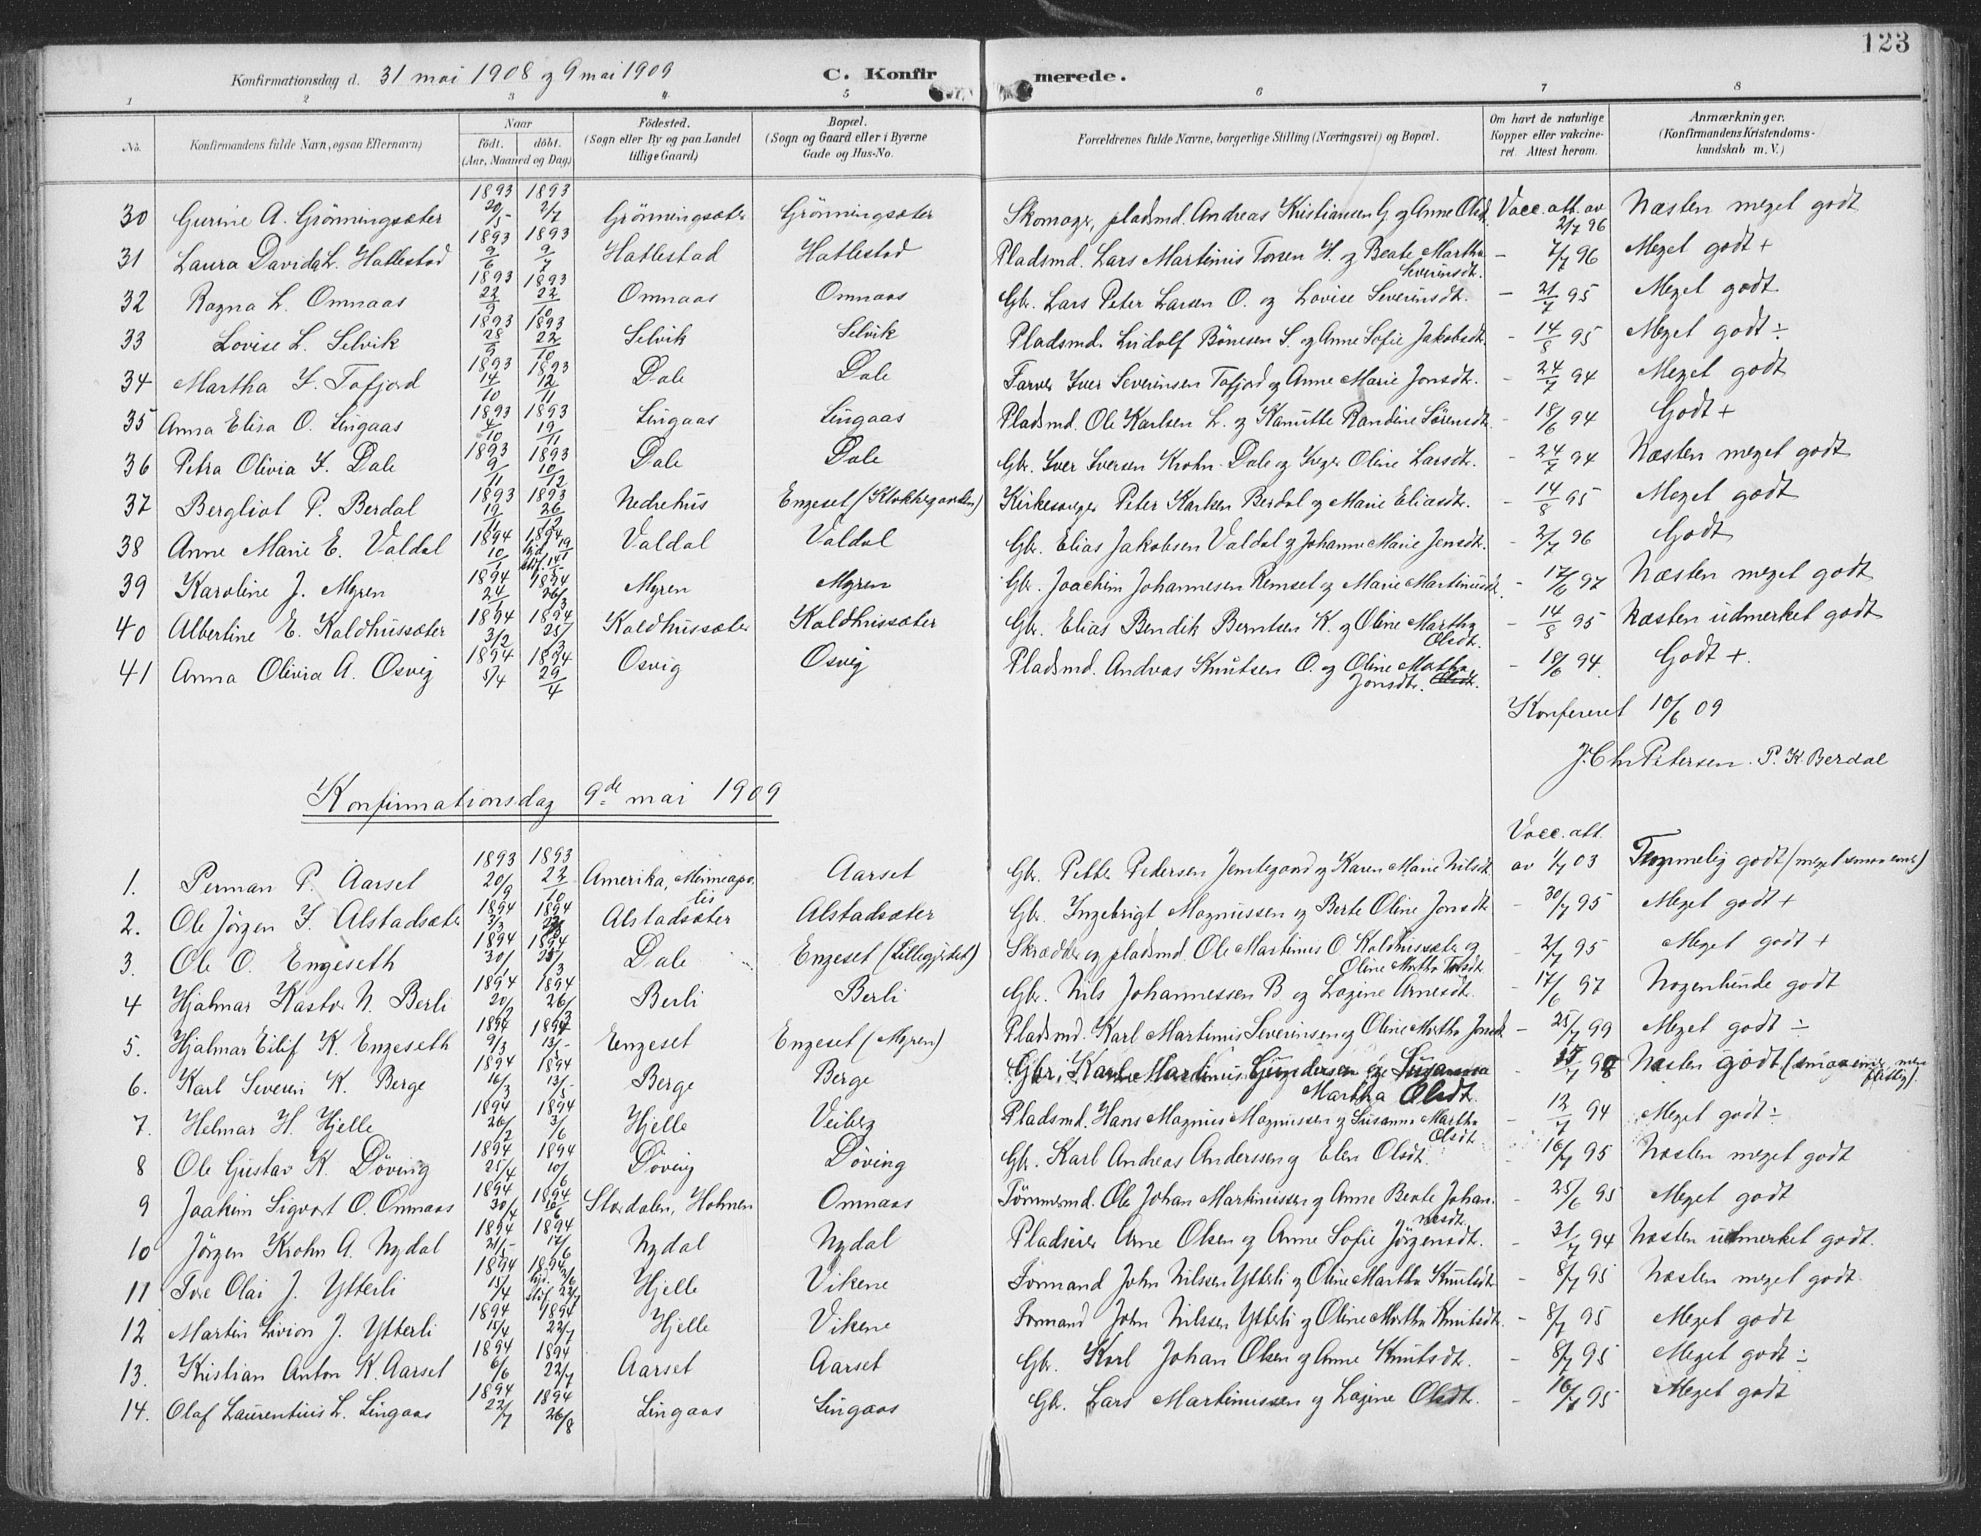 123
Konfirmationsdag d. 31 mai 1908 og 9 mai 1909 C. Konfirmerede.
1 2 3 4 5 6 7 8
No. Konfirmandens fulde Navn, ogsaa Efternavn) Naar født. døbt. (Aar, Maaned og Dag) Fødested. (Sogn eller By og paa Landet tillige Gaard) Bopæl. (Sogn og Gaard eller i Byerne Gade og Hus-No. Forældrenes fulde Navne, borgerlige Stilling (Næringsvei) og Bopæl. Om havt de naturlige Kopper eller vakcineret. Attest herom. Anmærkninger. (Konfirmandens Kristendomskundskab m. V.)
30 Gurine A. Grönningsæter 1893 20/5 1893 2/7 Grönningsæter Grönningsæter Skomager, pladsmd. Andreas Kristiansen G og Anne Olsdt. Vacc. att. av 2/7 96 Næsten meget godt
31 Laura Davida L. Hatlestad 1893 9/6 1893 9/7 Hatlestad Hatlestad Pladsmd. Lars Martinus Torsen H. og Beate Martha Severinsdt. - 7/7 96 Meget godt +
32 Ragna L. Omnaas 1893 22/9 1893 22/10 Omnaas Omnaas Gbr. Lars Peter Larsen O. og Lovise Severinsdt. - 21/7 95 Meget godt
33 Lovise L. Selvik 1893 28/9 1893 22/10 Selvik Selvik Pladsmd. Ludolf Bönesen S. og Anne Sofie Jakobsdt. - 14/8 95 Meget godt ÷
34 Martha I. Tafjord 1893 14/10 1893 12/11 Dale Dale Farver Iver Severinsen Tafjord og Anne Marie Jonsdt. - 24/7 94 Meget godt
35 Anna Elisa O. Lingaas 1893 4/10 1893 19/11 Lingaas Lingaas Pladsmd. Ole Karlsen L. og Kanutte Randine Sörensdt. - 18/6 94 Godt +
36 Petra Olivia I. Dale 1893 9/11 1893 10/12 Dale Dale Gbr. Iver Iversen Krohn Dale og Inger Oline Larsdt. - 24/7 94 Næsten meget godt
37 Bergliot P. Berdal 1893 19/11 1893 26/12 Nedrehus Engeset (Klokkegaarden) Kirkesanger Peter Karlsen Berdal og Marie Eliasdt. - 14/8 95 Meget godt
38 Anne Marie E. Valdal 1894 10/1 1894 Valdal Valdal Gbr. Elias Jakobsen Valdal og Johanne Marie Jensdt. - 2/7 96 Godt
39 Karoline J. Myren 1894 24/1 1894 26/3 Myren Myren Gbr. Joachim Johannesen Remset og Marie Martinusdt. - 17/6 97 Næsten meget godt
40 Albertine E. Kaldhussæter 1894 3/2 1894 25/3 Kaldhussæter Kaldhussæter Gbr. Elias Bendik Berntsen K. og Oline Martha Olsdt. - 14/8 95 Næsten udmerket godt
41 Anna Olivia A. Osvig 1894 5/4 1894 29/4 Osvig Osvig Pladsmd. Andreas Knutsen O. og Oline Martha Jonsdt. - 18/6 94. Godt +.
Konfereret 10/6 09
J. Chr Petersen. P. K. Berdal
Konfirmationsdag 9de mai 1909
1. Perman P. Aarset 1893 20/9 1893 22/10 Amerika, Minneapolis Aarset Gbr. Petter Pedersen Jemtegaard og Karen Marie Nilsdt Vacc. att. av 1/7 03 Temmelig godt
2. Ole Jörgen I. Alstadsæter 1894 3/3 1894 Alstadsæter Alstadsæter Gbr. Ingebrigt Magnussen og Berte Oline Jonsdt. - 30/7 95 Meget godt +
3. Ole O. Engeseth 1894 30/1 1894 25/3 Dale Engeset (Lillegjerdet) Skrædder og pladsmd. Ole Martinus O Kaldhussæter og Oline Martha Torsdt. - 2/7 95 Meget godt +
4 Hjalmar Kastor N. Berli 1894 20/2 1894 26/3 Berli Berli Gbr. Nils Johannessen B og Lagine Arnesdt. - 17/6 97 Nogenlunde godt
5. Hjalmar Eilif K. Engeseth 1894 9/3 1894 13/5 Engeset Engeset (Myren) Pladsmd. Karl Martinus Severinsen og Oline Martha Jonsdt - 25/7 99 Meget godt ÷
6. Karl Severin K. Berge 1894 16/3 1894 13/5 Berge Berge Gbr. Karl Martinus Gundersen og Susanna Martha Olsdt. Næsten godt
7. Helmar H. Hjelle 1894 26/2 1894 3/6 Hjelle Veiberg Pladsmd. Hans Magnus Magnussen og Susanna Martha Olsdt. - 12/7 94 Meget godt ÷
8 Ole Gustav K. Döving 1894 25/4 1894 10/6 Döving Döving Gbr. Karl Andreas Anderssen og Elen Olsdt. - 16/7 95 Næsten meget godt
9 Joakim Sigvart O. Omnaas 1894 30/4 1894 Stordalen, Holmen Omnaas Tömmermd. Ole Johan Martinussen og Anne Beate Johannesdt. - 25/6 95 Meget godt
10 Jörgen Krohn A. Nydal 1894 21/5 1894 17/6 Nydal Nydal Pladseier Arne Olsen og Anne Sofie Jörgensdt. - 31/7 94 Næsten udmerket godt.
11 Tore Olai J. Ytterli 1894 15/4 1894 Hjelle Vikene Formand John Nilssen Ytterli og Oline Martha Knutsdt - 8/7 95 Næsten meget godt.
12 Martin Livion J. Ytterli 1894 15/4 1894 22/7 Hjelle Vikene Formand John Nilssen Ytterli og Oline Martha Knutsdt. - 8/7 95 Meget godt
13. Kristian Anton K. Aarset 1894 6/6 1894 22/7 Aarset Aarset Gbr. Karl Johan Olsen og Anne Knutsdt. - 8/7 95 Meget godt ÷
14. Olaf Laurentius L. Lingaas 1894 22/7 1894 26/8 Lingaas Lingaas Gbr. Lars Martinussen og Lagine Olsdt. - 16/7 95 Meget godt